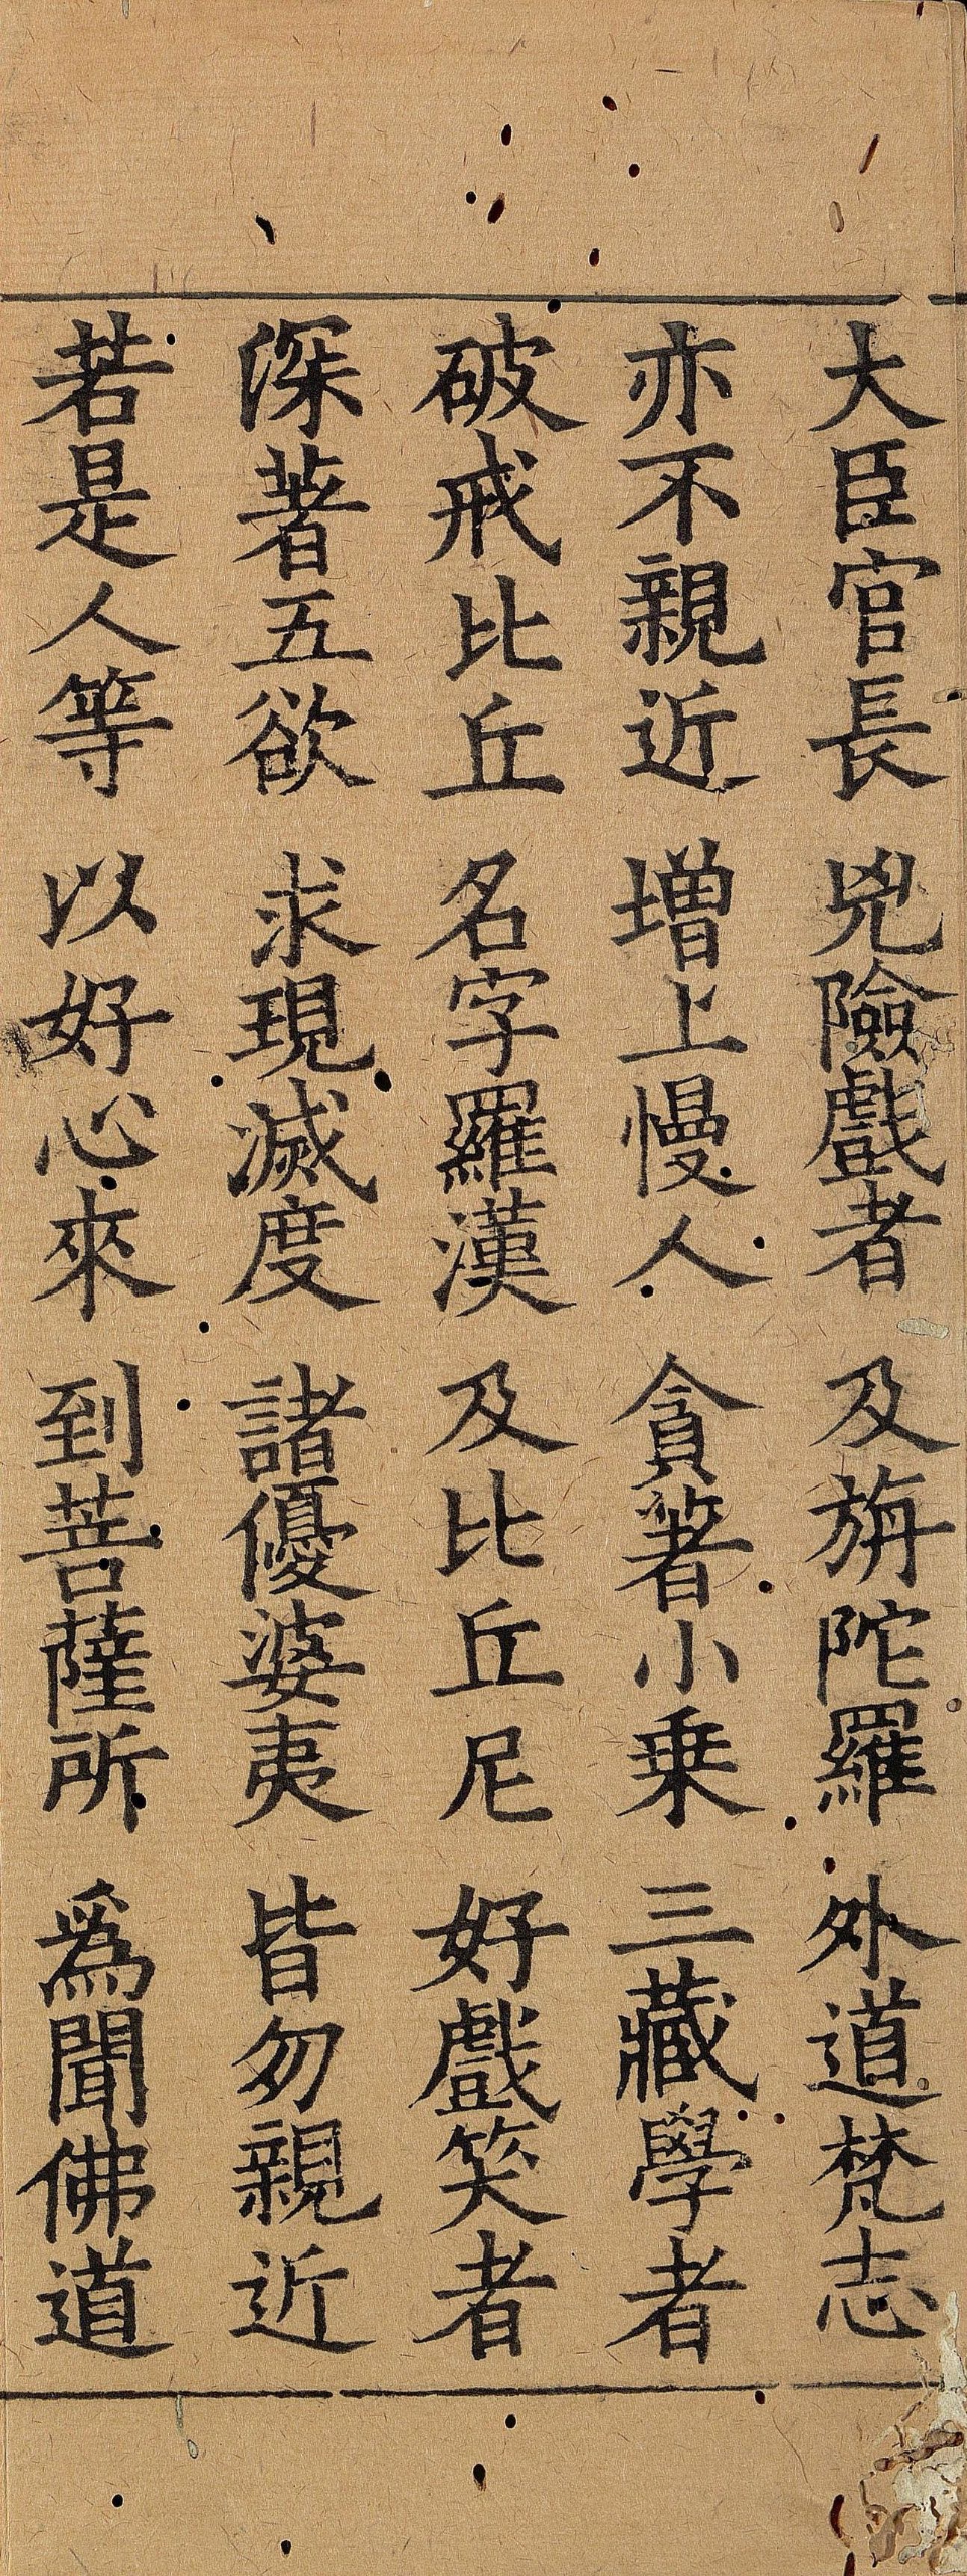 大臣官長　兇險戲者　及旃陀羅　外道梵志
亦不親近　増上慢人　貪著小乗　三藏學者
破戒比丘　名字羅漢　及比丘尼　好戲笑者
深著五欲　求現滅度　諸優婆夷　皆勿親近
若是人等　以好心來　到菩薩所　爲聞佛道